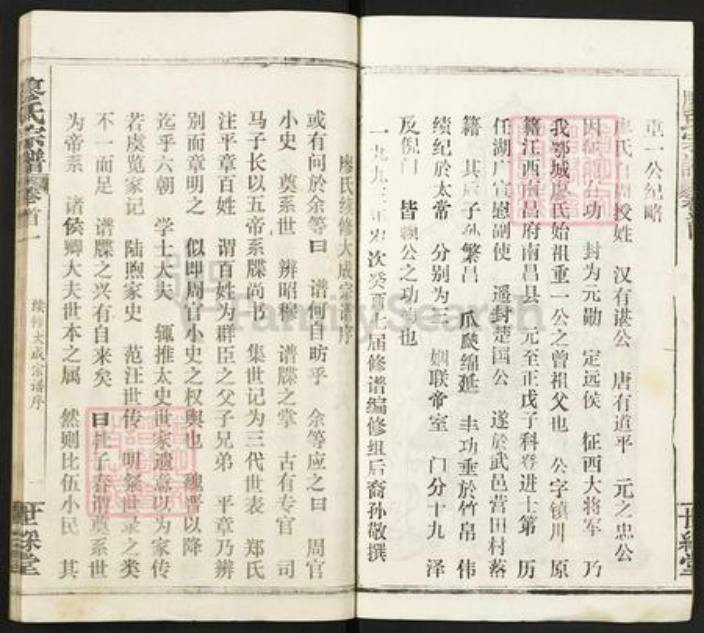 重一公纪略
廖氏自周授姓 汉有谌公 唐有道平 元之忠公
因 功 封为元勋 定远侯 征西大将军 乃
我鄂城廖氏始祖重一公之曾祖父也 公字镇川 原
籍江西南昌府南昌县 元至正戊子科登进士第 历
任湖广宣慰副使 遥封楚国公 遂於武邑营田村落
籍 其 子孙繁昌 瓜瓞绵延 丰功垂於竹帛 伟
绩纪於太常 分别为三 姻联帝室 门分十九 泽
及倪门 皆赖公之功 也
一九九三年岁次癸酉七届修谱编修组后裔孙敬撰
廖氏续修大成宗谱序
或有问於余等曰 谱何自昉乎 余等应之曰 周官
小史 奠系世 辨昭穆 谱牒之掌 古有专官 司
马子长以五帝系牒尚书 集世记为三代世表 郑氏
注平章百姓 谓百姓为群臣之父子兄弟 平章乃辨
别而章明之 似即周官小史之权舆也 魏晋以降
迄乎六朝 学士大夫 辄推太史世家遗意以为家传
若虞览家记 陆煦家史 范汪世传 明粲世录之类
不一而足 谱牒之兴有自来矣 曰杜子春谓奠系世
为帝系 诸侯卿大夫世本之属 然则比伍小民 其
廖氏宗谱 卷首一
续修大成宗谱序
一
世綵堂
世綵堂